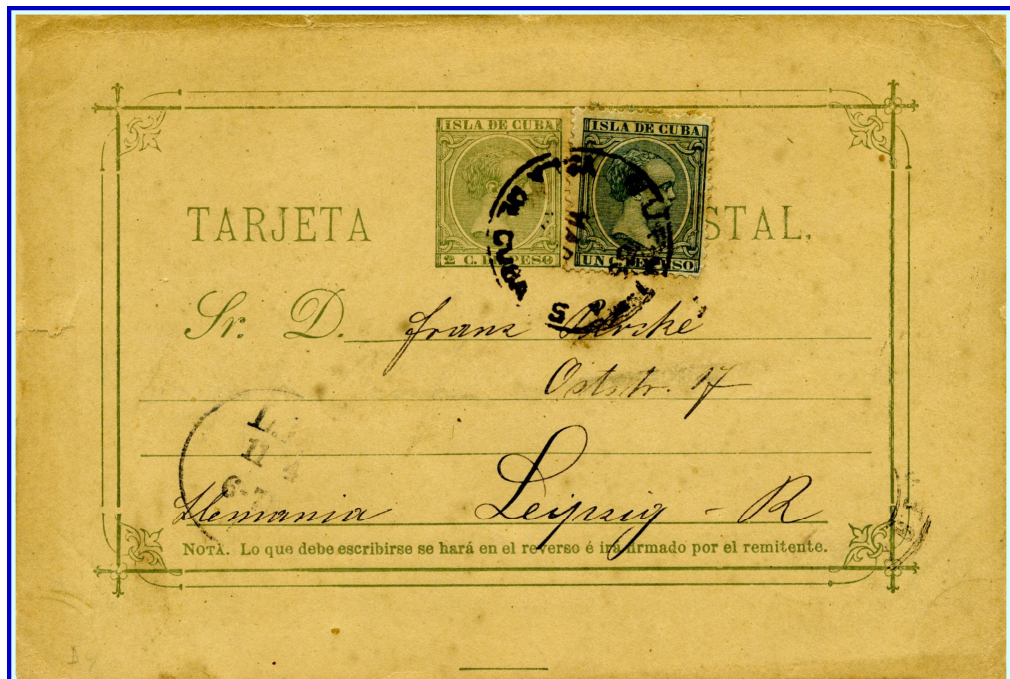 ISLA DE CUBA
ISLA DE CUBA
TARJETA STAL.
2 C. PESO
UN SO
LA DE CUBA
MAR
S
Sr. D. Franz
Oststr. 17
11 4
Alemania Leipzig - R
NOTA. Lo que debe escribirse se hará en el reverso é irá firmado por el remitente.